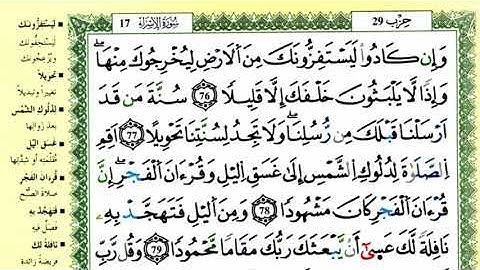 حِزْبُ 29
سُورَةُ الْإِسْرَاءِ 17
وَإِن كَادُوا۟ لَيَسْتَفِزُّونَكَ مِنَ ٱلَارْضِ لِيُخْرِجُوكَ مِنْهَاۖ
وَإِذًا لَّا يَلْبَثُونَ خَلْفَكَ إِلَّا قَلِيلًا 76 سُنَّةَ مَن قَدَ
ارْسَلْنَا قَبْلَكَ مِن رُّسُلِنَاۖ وَلَا تَجِدُ لِسُنَّتِنَا تَحْوِيلًا 77 أَقِمِ
ٱلصَّلَوٰةَ لِدُلُوكِ ٱلشَّمْسِ إِلَىٰ غَسَقِ ٱلَّيْلِ وَقُرْءَانَ ٱلْفَجْرِۖ إِنَّ
قُرْءَانَ ٱلْفَجْرِ كَانَ مَشْهُودًا 78 وَمِنَ ٱلَّيْلِ فَتَهَجَّدْ بِهِۦ
نَافِلَةً لَّكَ عَسَىٰٓ أَنْ يَّبْعَثَكَ رَبُّكَ مَقَامًا مَّحْمُودًا 79 وَقُل رَّبِّ
لَيَسْتَفِزُّونَكَ
لَيَسْتَخِفُّونَكَ
وَيُزْعِجُونَكَ
تَحْوِيلًا
تَغْيِيرًا وَتَبْدِيلًا
لِدُلُوكِ الشَّمْسِ
بعد زوالها
غَسَقِ الَّيْلِ
ظُلْمَتِهِ أو شدّتها
قُرْءَانَ الْفَجْرِ
صلاة الصّبح
فَتَهَجَّدْ بِهِ
فصلّ فيه
نَافِلَةً لَّكَ
فريضة زائدة